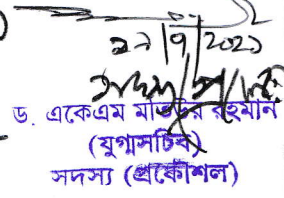 ২৯/৭/২০২১
ড. একেএম মতিউর রহমান
(যুগ্মসচিব)
সদস্য (প্রকৌশল)